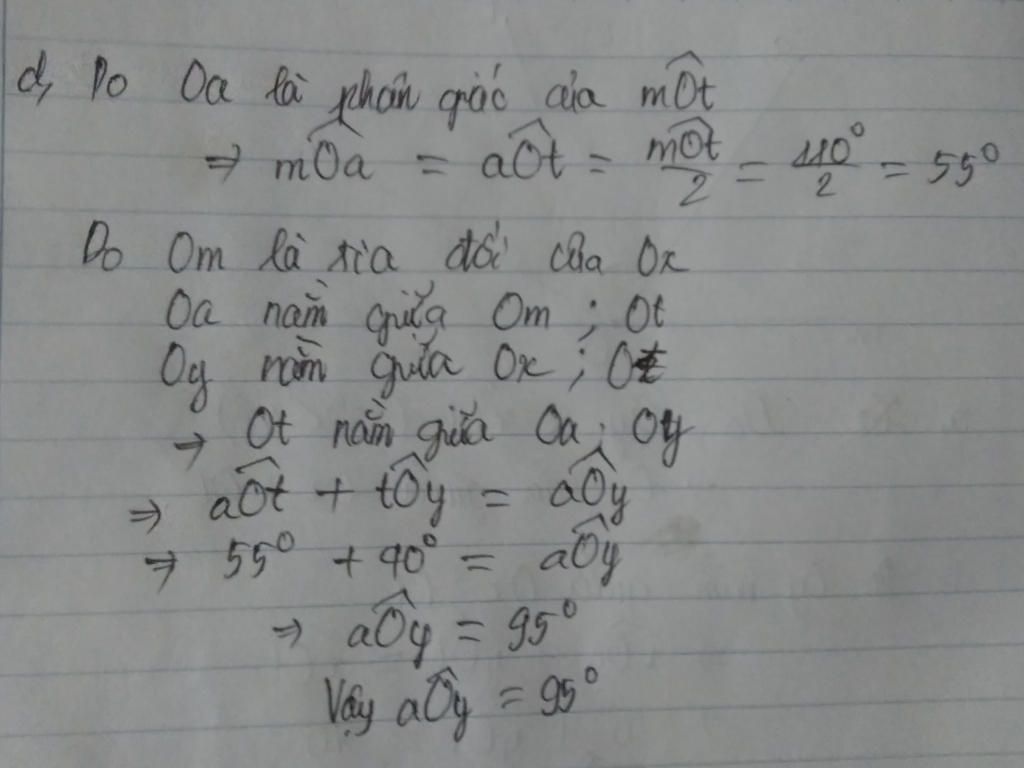 d, Do Oa là phân giác của mÔt
⇒ mÔa = aÔt = mÔt/2 = 110°/2 = 55°
Do Om là tia đối của Ox
Oa nằm giữa Om ; Ot
Oy nằm giữa Ox ; Ot
→ Ot nằm giữa Oa ; Oy
⇒ aÔt + tÔy = aÔy
⇒ 55° + 40° = aÔy
⇒ aÔy = 95°
Vậy aÔy = 95°